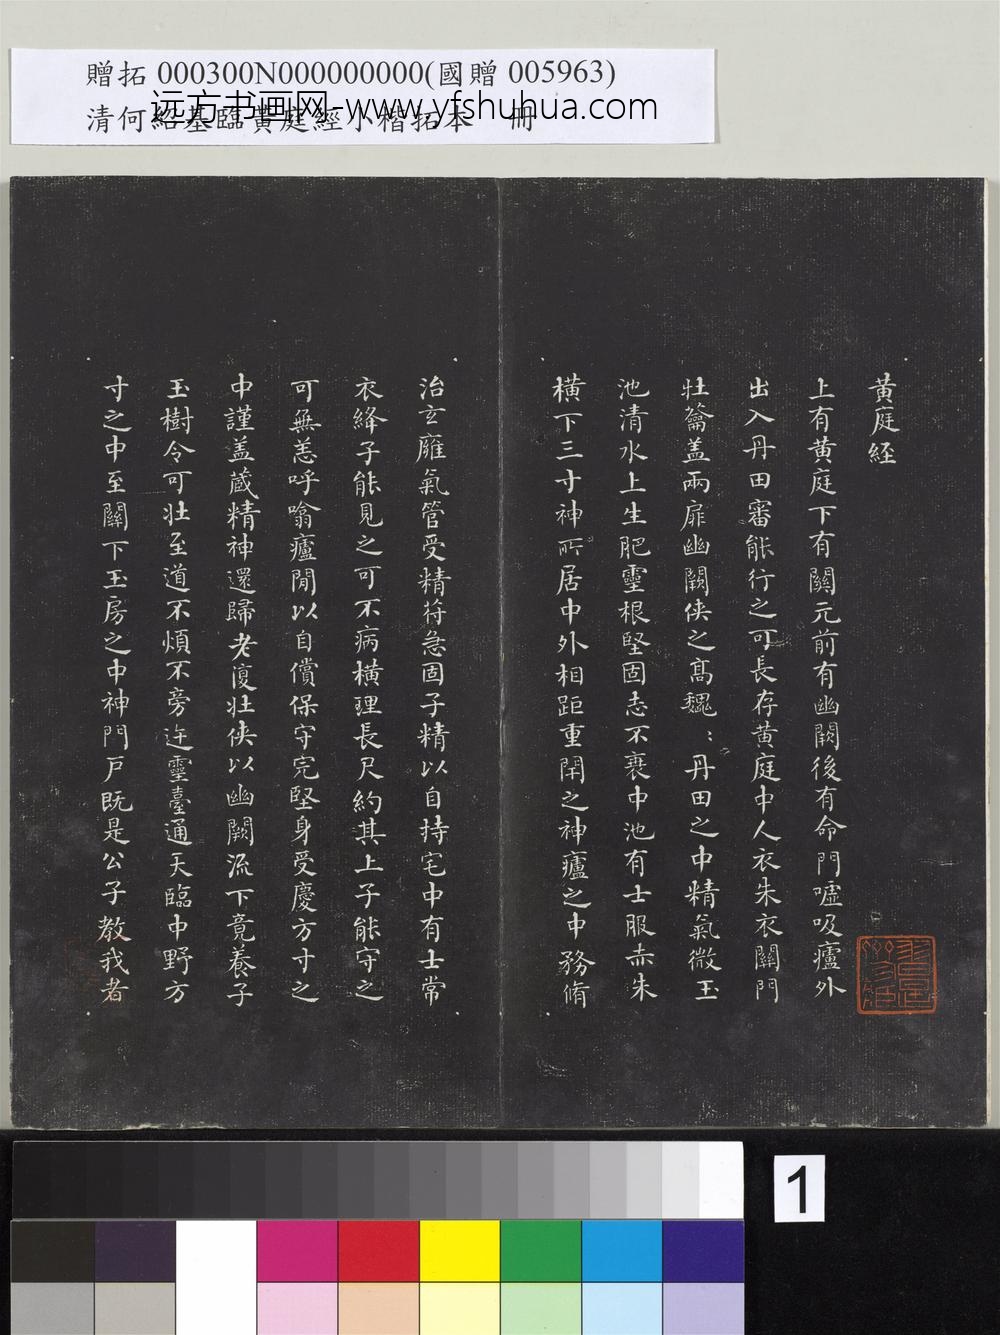 贈拓 000300N000000000(國贈 005963)
清何紹基臨黃庭經小楷拓本 冊
远方书画网-www.yfshuhua.com
黃庭経
上有黄庭下有關元前有幽闕後有命門嘘吸廬外
出入丹田審能行之可長存黄庭中人衣朱衣關門
壮籥盖兩扉幽闕俠之髙魏：丹田之中精氣微玉
池清水上生肥靈根堅固志不衰中池有士服赤朱
横下三寸神所居中外相距重閇之神廬之中務脩
治玄廱氣管受精符急固子精以自持宅中有士常
衣絳子能見之可不病横理長尺約其上子能守之
可無恙呼噏廬閒以自償保守完堅身受慶方寸之
中謹盖蔵精神還歸老復壮俠以幽闕流下竟養子
玉樹令可壮至道不煩不旁迕靈臺通天臨中野方
寸之中至關下玉房之中神門戸既是公子教我者
1